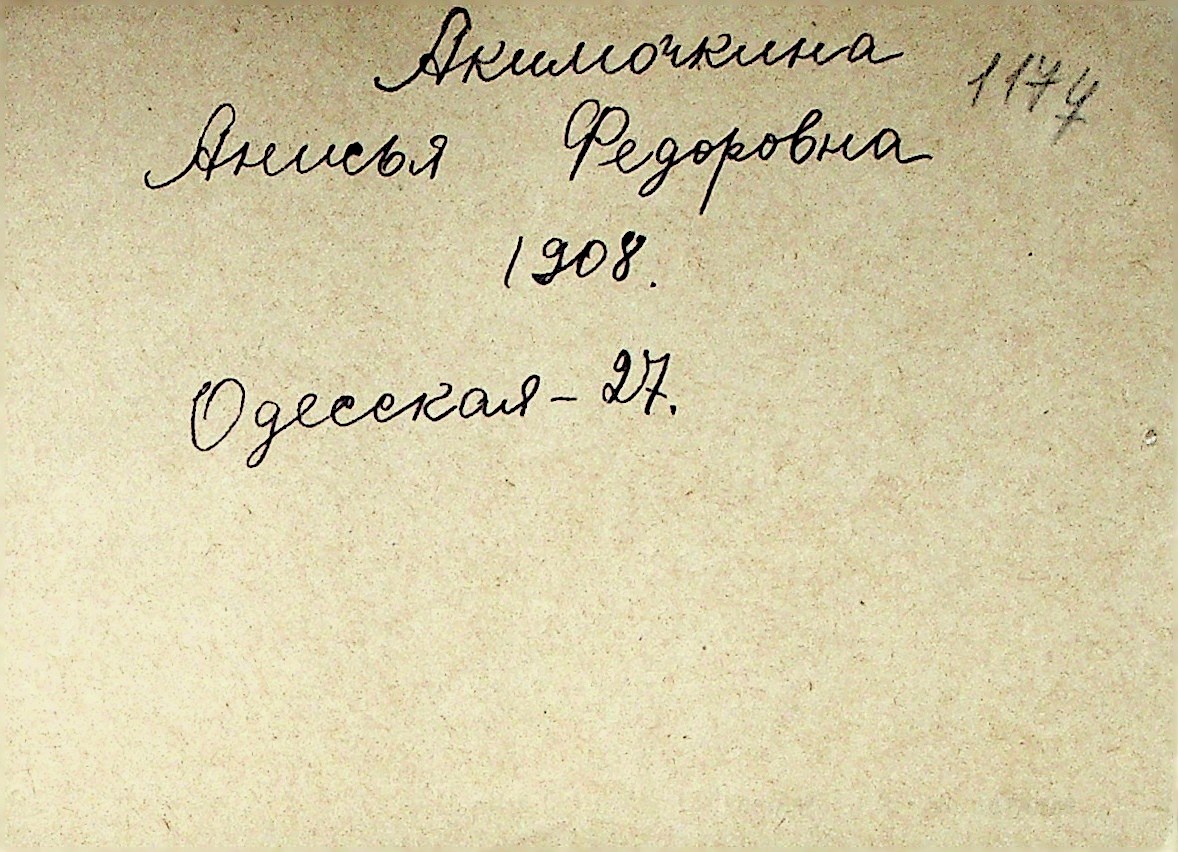 Акимочкина
1174
Анисья Федоровна
1908.
Одесская - 27.